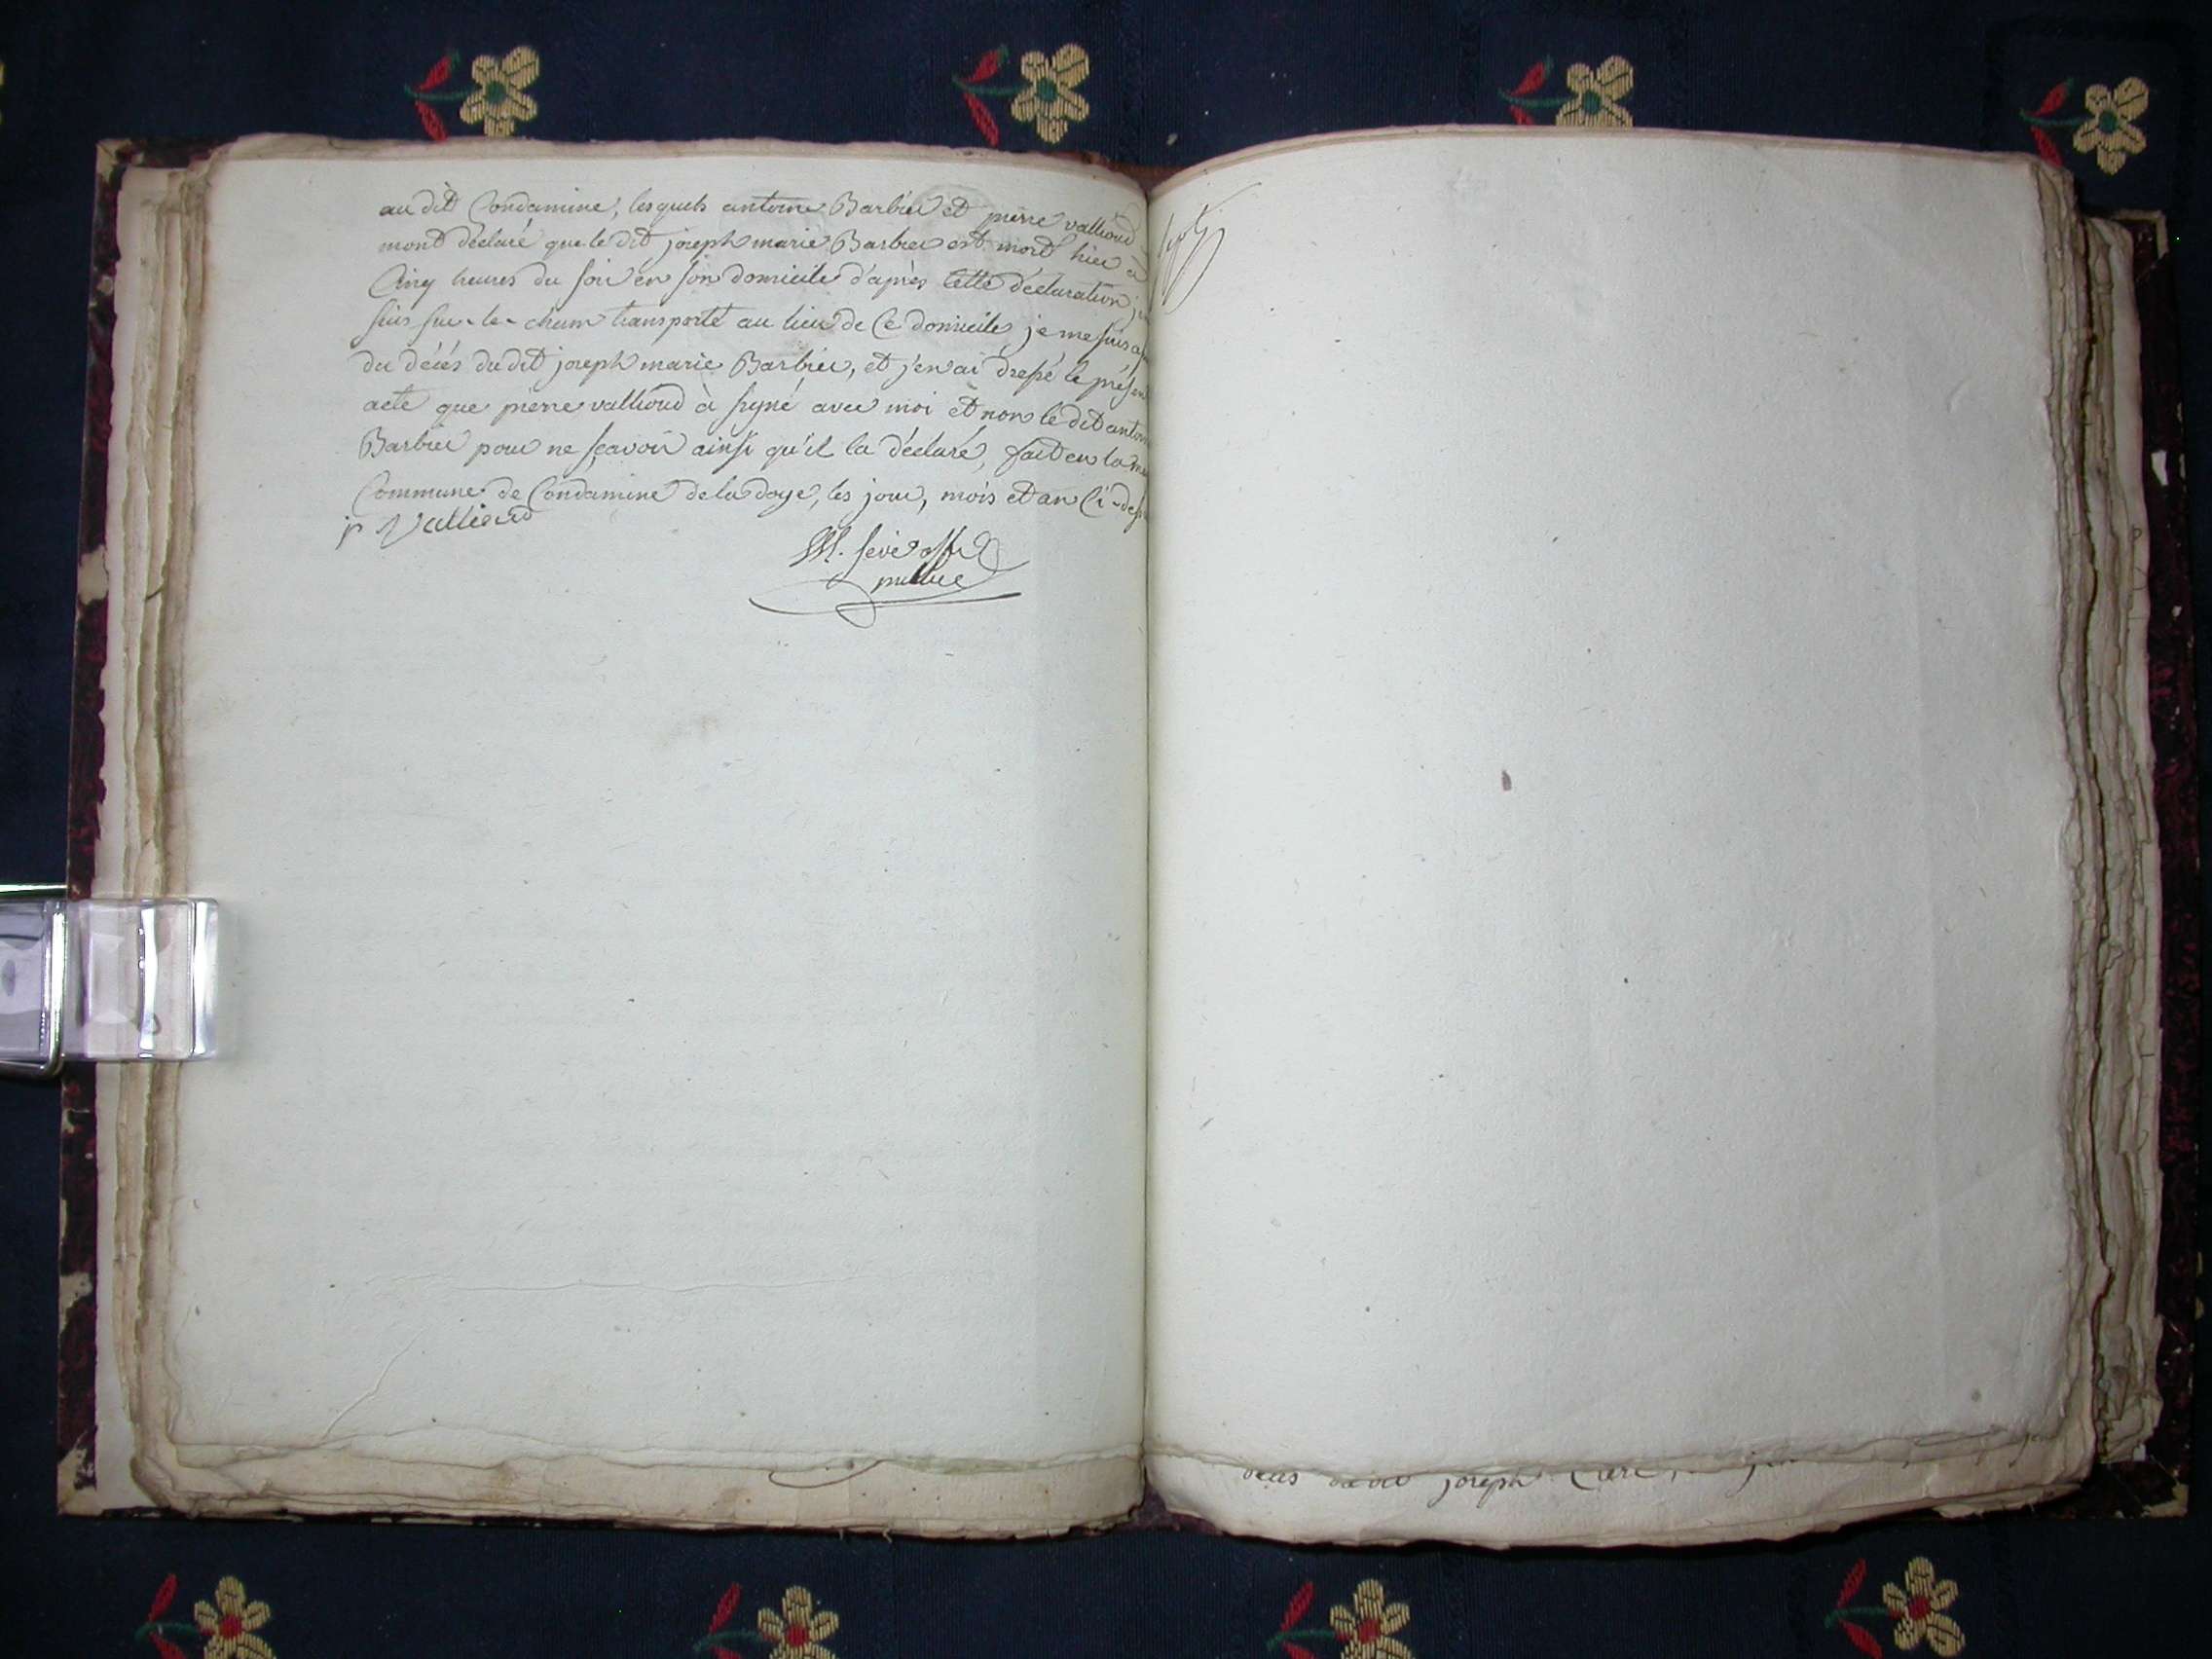 au dit Condamine, lesquels antoine Barbier et pierre vallioud
mont déclaré que le dit joseph marie Barbier est mort hier à
Cinq heures du soir en son domicile d'après cette déclaration je
suis sur-le-cham transporté au lieu de ce domicile, je me suis a
du décés du dit joseph marie Barbier, et j'en ai dressé le présen
acte que pierre vallioud à signé avec moi et non le dit antoin
Barbier pour ne sçavoir ainsi qu'il la déclaré, fait en la m
Commune de Condamine de la doye, les jour, mois et an ci-dess
p Vallioud
offi
public
joseph